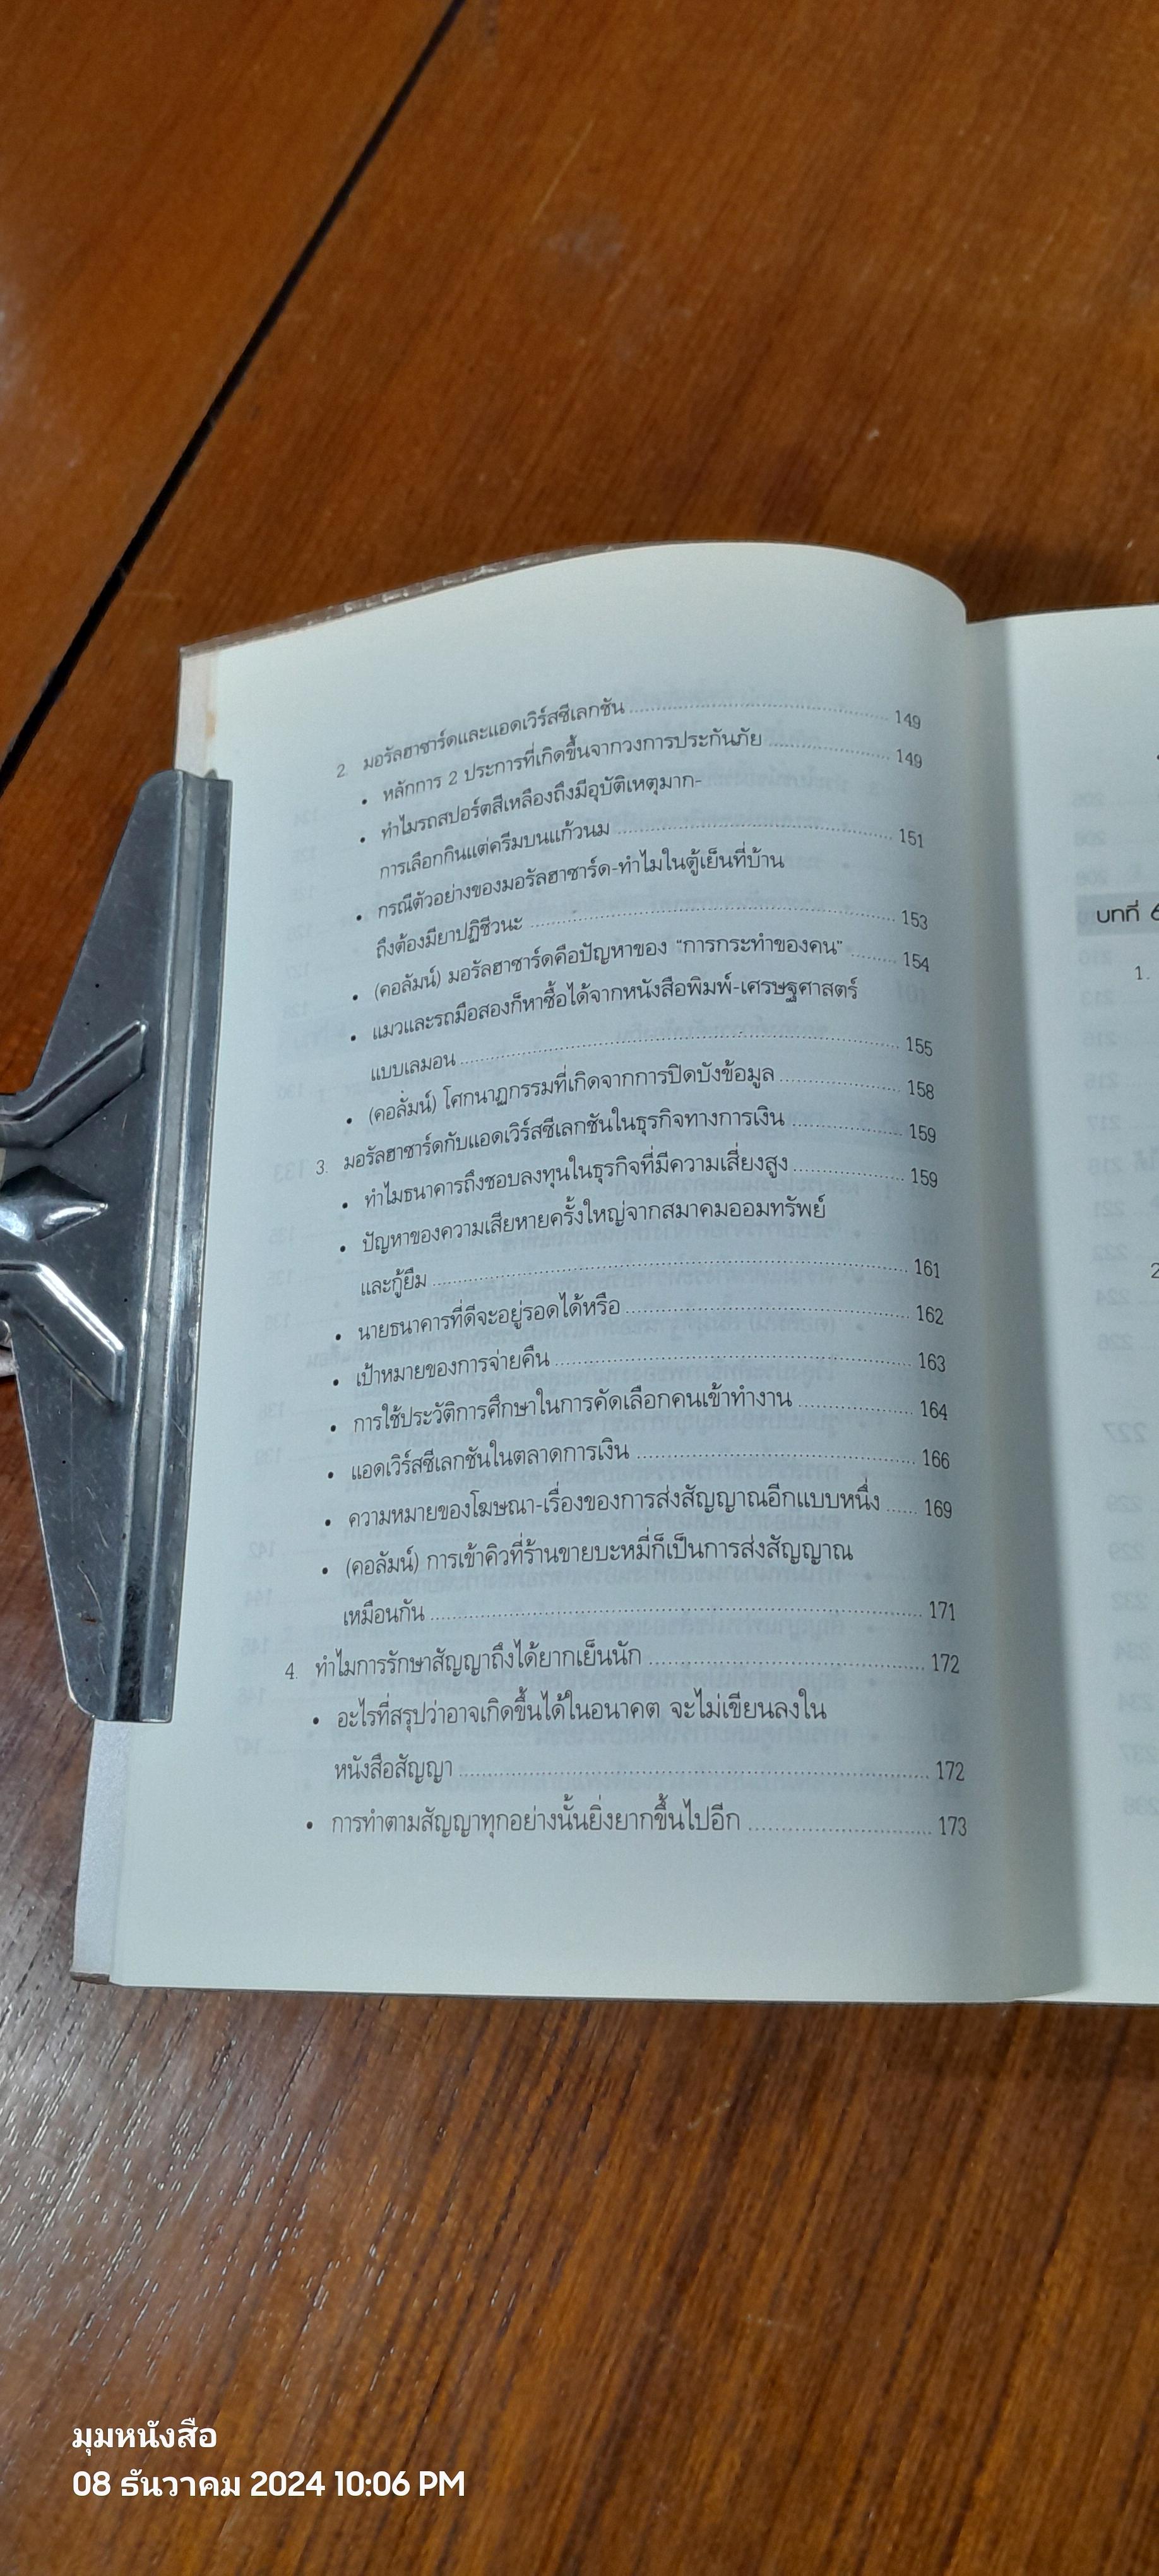 2. มอรัลฮาซาร์ดและแอดเวิร์สซีเลกชัน ........ 149
• หลักการ 2 ประการที่เกิดขึ้นจากวงการประกันภัย ........ 149
• ทำไมรถสปอร์ตสีเหลืองถึงมีอุบัติเหตุมาก-
การเลือกกินแต่ครีมบนแก้วนม ........ 151
• กรณีตัวอย่างของมอรัลฮาซาร์ด-ทำไมในตู้เย็นที่บ้าน
ถึงต้องมียาปฏิชีวนะ ........ 153
• (คอลัมน์) มอรัลฮาซาร์ดคือปัญหาของ “การกระทำของคน” ........ 154
• แมวและรถมือสองก็หาซื้อได้จากหนังสือพิมพ์-เศรษฐศาสตร์
แบบเลมอน ........ 155
• (คอลัมน์) โศกนาฏกรรมที่เกิดจากการปิดบังข้อมูล ........ 158
3. มอรัลฮาซาร์ดกับแอดเวิร์สซีเลกชันในธุรกิจทางการเงิน ........ 159
• ทำไมธนาคารถึงชอบลงทุนในธุรกิจที่มีความเสี่ยงสูง ........ 159
• ปัญหาของความเสียหายครั้งใหญ่จากสมาคมออมทรัพย์
และกู้ยืม ........ 161
• นายธนาคารที่ดีจะอยู่รอดได้หรือ ........ 162
• เป้าหมายของการจ่ายคืน ........ 163
• การใช้ประวัติการศึกษาในการคัดเลือกคนเข้าทำงาน ........ 164
• แอดเวิร์สซีเลกชันในตลาดการเงิน ........ 166
• ความหมายของโฆษณา-เรื่องของการส่งสัญญาณอีกแบบหนึ่ง ...... 169
• (คอลัมน์) การเข้าคิวที่ร้านขายบะหมี่ก็เป็นการส่งสัญญาณ
เหมือนกัน ........ 171
4. ทำไมการรักษาสัญญาถึงได้ยากเย็นนัก ........ 172
• อะไรที่สรุปว่าอาจเกิดขึ้นได้ในอนาคต จะไม่เขียนลงใน
หนังสือสัญญา ........ 172
• การทำตามสัญญาทุกอย่างนั้นยิ่งยากขึ้นไปอีก ........ 173
บทที่ 6
1.
2
มุมหนังสือ
08 ธันวาคม 2024 10:06 PM